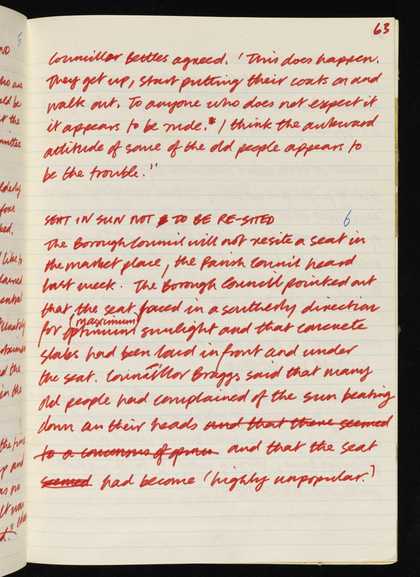 63
Councillor Bettles agreed. 'This does happen.
They get up, start putting their coats on and
walk out. To anyone who does not expect it
it appears to be rude. I think the awkward
attitude of some of the old people appears to
be the trouble."
SEAT IN SUN NOT TO BE RE-SITED 6
The Borough Council will not resite a seat in
the market place, the Parish Council heard
last week. The Borough Council pointed out
that the seat faced in a southerly direction
for optimum (maximum) sunlight and that concrete
slabs had been laid in front and under
the seat. Councillor Braggs said that many
old people had complained of the sun beating
down on their heads and that there seemed
to a concensus of and that the seat
seemed had become 'highly unpopular.'